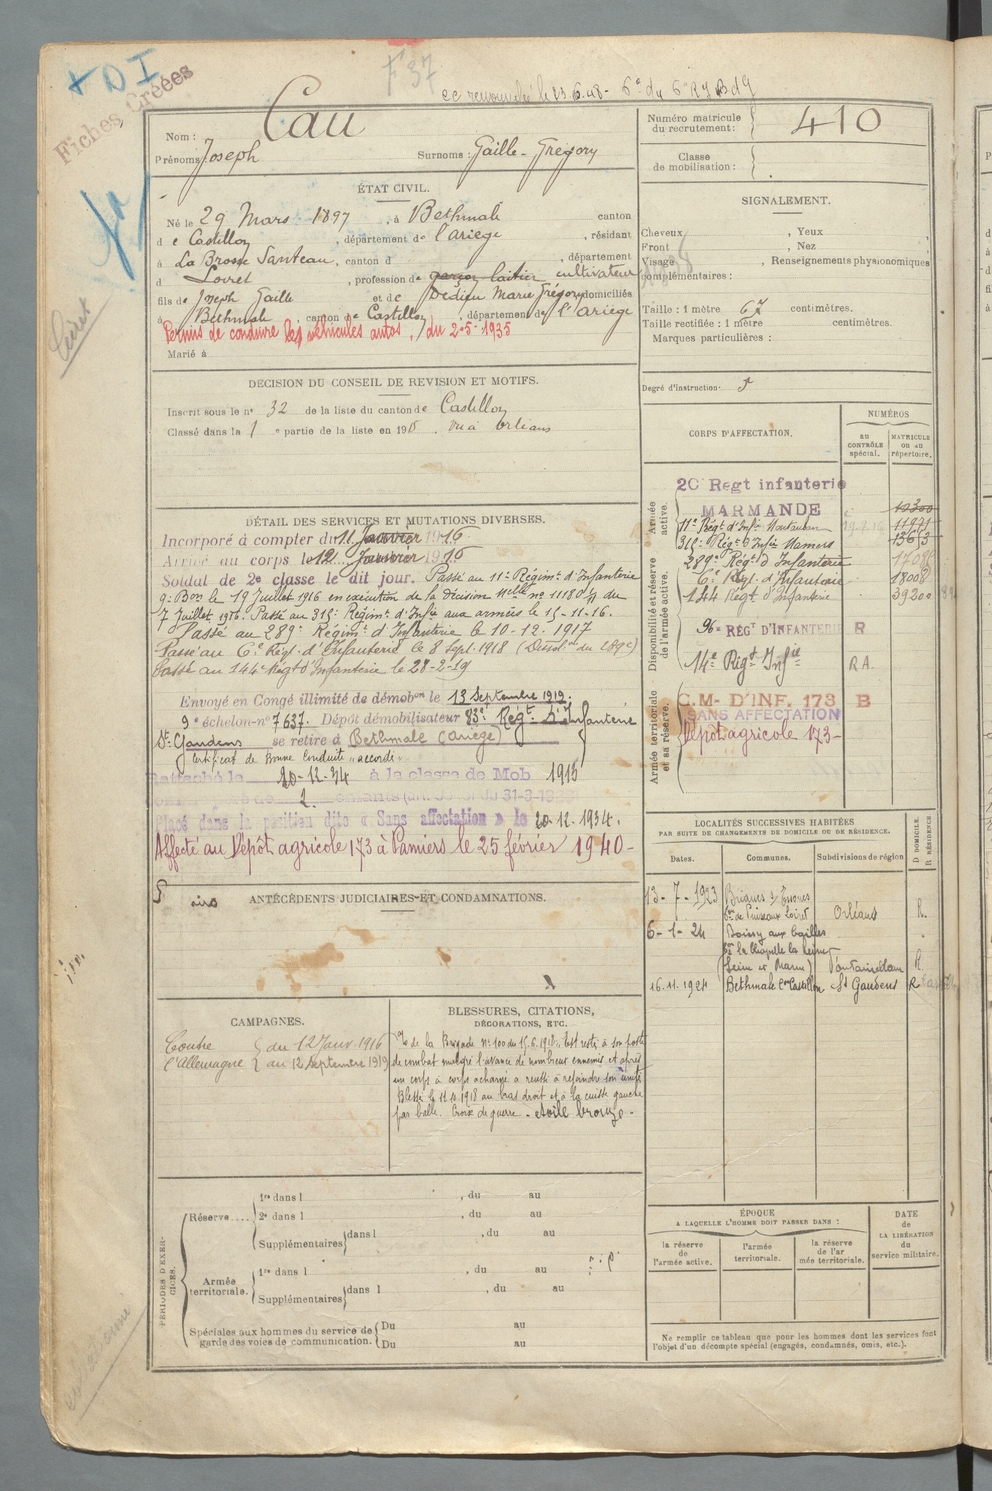 + D I
Fiches Créées
F 37
cc renouvelée le 23.6.48 - 6e du 6e R
Nom : Cau
Prénoms : Joseph Surnoms : Gaille - Gregory
Numéro matricule du recrutement : 410
Classe de mobilisation :
ÉTAT CIVIL.
Né le 29 Mars 1897, à Bethmale canton
de Castillon, département de l'ariege, résidant
à La Brosse Santeau, canton d , département
d Loiret, profession de garçon laitier cultivateur
fils de Joseph Gaille et de Dedieu Marie Grégory domiciliés
à Bethmale, canton de Castillon, département de l'ariège
Permis de conduire les véhicules autos, du 2-5-1935
Marié à
Loiret
SIGNALEMENT.
Cheveux , Yeux ,
Front , Nez
Visage , Renseignements physionomiques
complémentaires :
Taille : 1 mètre 67 centimètres.
Taille rectifiée : 1 mètre centimètres.
Marques particulières :
Degré d'instruction :
DECISION DU CONSEIL DE REVISION ET MOTIFS.
Inscrit sous le n° 32 de la liste du canton de Castillon
Classé dans la 1e partie de la liste en 191 . Vu à Orléans
DÉTAIL DES SERVICES ET MUTATIONS DIVERSES.
Incorporé à compter du 11 Janvier 1916
Arrivé au corps le 12 Janvier 1916
Soldat de 2e classe le dit jour. Passé au 11e Régimt d'Infanterie
9e Bon le 19 Juillet 1916 en exécution de la décision Melle no 11180 du
7 Juillet 1916. Passé au 315e Régimt d'Infie aux armées le 15-11-16.
Passé au 289e Régimt d'Infanterie le 10-12-1917
Passé au 6e Régt d'Infanterie le 8 Sept. 1918 (Dissolon du 289e)
Passé au 144e Régt d'Infanterie le 28-2-19
Envoyé en Congé illimité de démobon le 13 Septembre 1919.
9e échelon-n° 7637. Dépôt démobilisateur 83e Régt d'Infanterie
St Gaudens se retire à Bethmale (ariège)
Certificat de Bonne Conduite "accordé"
Rattaché le 20-12-34 à la classe de Mob 1915
2 enfants du 31-3-1928
Placé dans la position dite « Sans affectation » le 20-12-1934.
Affecté au Dépôt agricole 173 à Pamiers le 25 février 1940-
CORPS D'AFFECTATION.
NUMÉROS
AU CONTRÔLE spécial.
MATRICULE OU AU répertoire.
Armée active.
20 Regt infanterie
MARMANDE 12300
11e Régt d'Infie Montauban 11971
315e Régt d'Infie Mamers 13613
289e Régt d'Infanterie
6e Régt d'Infanterie 18008
144 Régt d'Infanterie 39200
Disponibilité et réserve de l'armée active.
96e RÉGT D'INFANTERIE R
14e Régt Infie R.A.
Armée territoriale et sa réserve.
C.M- D'INF. 173 B
SANS AFFECTATION
Dépôt agricole 173-
ANTÉCÉDENTS JUDICIAIRES ET CONDAMNATIONS.
LOCALITÉS SUCCESSIVES HABITÉES
PAR SUITE DE CHANGEMENTS DE DOMICILE OU DE RÉSIDENCE.
Dates. Communes. Subdivisions de région
D DOMICILE. R RÉSIDENCE
13-7-1923 Briarres s/ Essonnes
Con de Puiseaux Loiret Orléans R.
6-1-24 Boissy aux Cailles
Con la Chapelle la Reine
(Seine et Marne) Fontainebleau R
16.11.1924 Bethmale Con Castillon St Gaudens R
CAMPAGNES.
Contre l'Allemagne { du 12 Janv. 1916
au 12 Septembre 1919
BLESSURES, CITATIONS,
DÉCORATIONS, ETC.
de la Brigade N° 100 du 15.6.1918. Est resté à son poste
de combat malgré l'avance de nombreux ennemis et après
un corps à corps acharné a réussi à rejoindre son unité
Blessé le 1918 au bras droit et à la cuisse gauche
par balle. Croix de guerre - étoile bronze -
PÉRIODES D'EXERCICES.
Réserve.... 1re dans l , du au
2e dans l , du au
Supplémentaires dans l , du au
Armée territoriale. 1re dans l , du au
Supplémentaires dans l , du au
Spéciales aux hommes du service de Du au
garde des voies de communication. Du au
ÉPOQUE
A LAQUELLE L'HOMME DOIT PASSER DANS :
la réserve de l'armée active.
l'armée territoriale.
la réserve de l'armée territoriale.
DATE de LA LIBÉRATION du service militaire.
Ne remplir ce tableau que pour les hommes dont les services font
l'objet d'un décompte spécial (engagés, condamnés, omis, etc.).